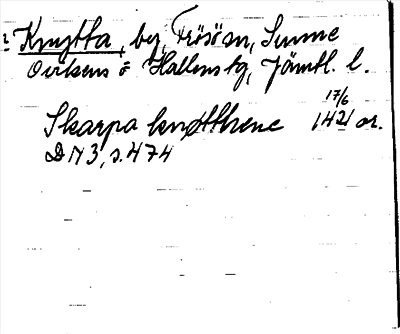 ? Knytta, by, Frösön, Sunne
Oviksns o Hallens tg, Jämtl. l.
17/6
Skarpa knøtthene 1421 or.
DN 3, s. 474